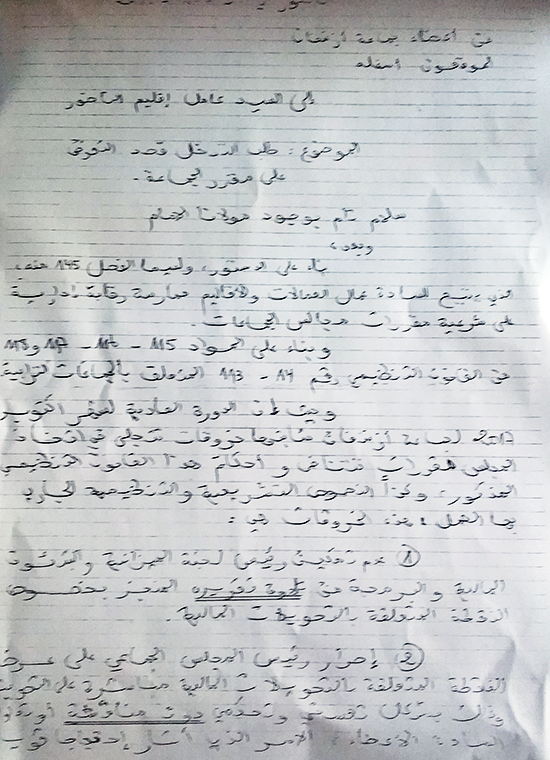 من أعضاء جماعة أزغنغان
الموقعون أسفله
إلى السيد عامل إقليم الناظور
الموضوع: طلب التدخل قصد التعرض
على مقرر الجماعة.
سلام تام بوجود مولانا الإمام
وبعد،
بناء على الدستور، ولاسيما الفصل 145 منه،
الذي يتيح للسادة عمال العمالات والأقاليم ممارسة رقابة إدارية
على شرعية مقررات مجالس الجماعات.
وبناء على المواد 115 - 116 - 117 و118
من القانون التنظيمي رقم 14 - 113 المتعلق بالجماعات الترابية
وحيث إن الدورة العادية لشهر أكتوبر
2017 لجماعة أزغنغان شابتها خروقات تتجلى في اتخاذ
المجلس مقررات تتنافى و أحكام هذا القانون التنظيمي
المذكور، وكذا النصوص التشريعية والتنظيمية الجاري
بها العمل، هذه الخروقات هي:
① عدم تمكين رئيس لجنة الميزانية والشؤون
المالية والبرمجة من تلاوة تقريره المنجز بخصوص
النقطة المتعلقة بالتحويلات المالية.
② إصرار رئيس المجلس الجماعي على عرض
النقطة المتعلقة بالتحويلات المالية مباشرة على التصويت
وذلك بشكل تعسفي وتحكمي دون مناقشة أو تداول
السادة الأعضاء، الأمر الذي أثار إحتجاجا